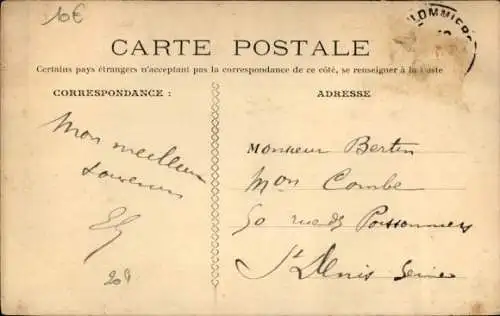 10€
LOMMIERS
CARTE POSTALE
Certains pays étrangers n'acceptant pas la correspondance de ce côté, se renseigner à la Poste
CORRESPONDANCE :
ADRESSE
Mon meilleur
souvenir
Monsieur Bertin
Mon Combe
50 rue des Poissonniers
St Denis Seine